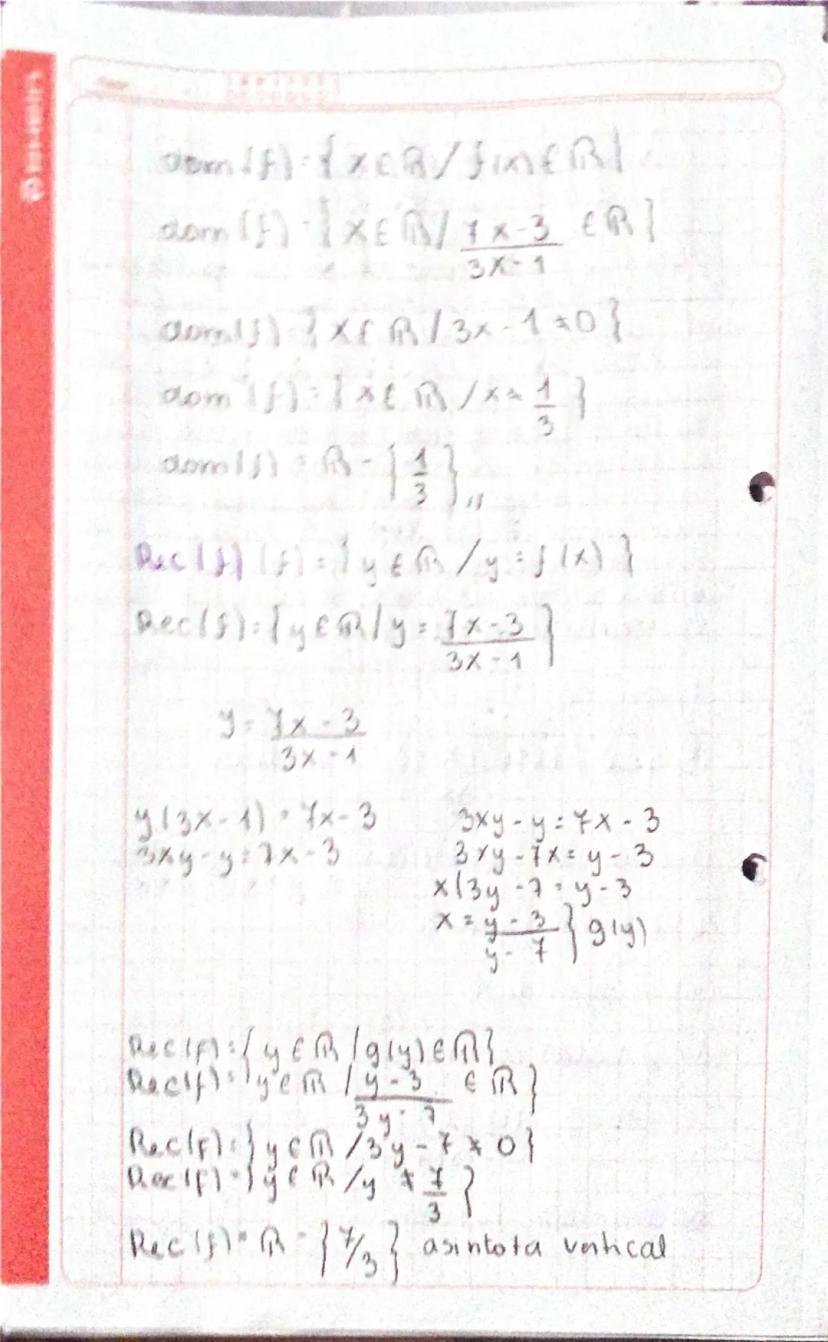 dom(f) = {x ∈ ℝ / f(x) ∈ ℝ}
dom(f) = {x ∈ ℝ / (7x - 3)/(3x - 1) ∈ ℝ}
dom(f) = {x ∈ ℝ / 3x - 1 ≠ 0}
dom(f) = {x ∈ ℝ / x ≠ 1/3}
dom(f) = ℝ - {1/3},,
Rec(f) (f) = {y ∈ ℝ / y = f(x)}
Rec(f) = {y ∈ ℝ / y = (7x - 3)/(3x - 1)}
y = (7x - 3)/(3x - 1)
y(3x - 1) = 7x - 3
3xy - y = 7x - 3
3xy - y = 7x - 3
3xy - 7x = y - 3
x(3y - 7 = y - 3
x = (y - 3)/(y - 7) } g(y)
Rec(f) = {y ∈ ℝ / g(y) ∈ ℝ}
Rec(f) = {y ∈ ℝ / (y - 3)/(3y - 7) ∈ ℝ}
Rec(f) = {y ∈ ℝ / 3y - 7 ≠ 0}
Rec(f) = {y ∈ ℝ / y ≠ 7/3}
Rec(f) = ℝ - {7/3} asintota vertical